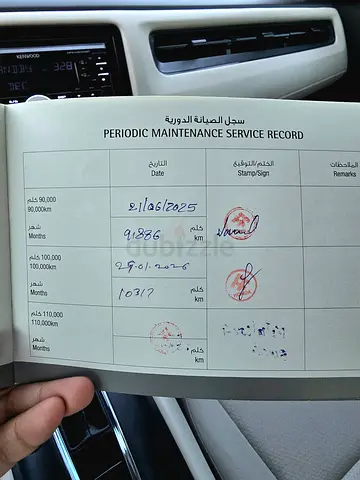 KENWOOD
سجل الصيانة الدورية
PERIODIC MAINTENANCE SERVICE RECORD
التاريخ الختم/التوقيع الملاحظات
Date Stamp/Sign Remarks
90,000 كلم
90,000km
21/06/2025
شهر
Months
91886 كلم
km
100,000 كلم
100,000km
29.01.2026
شهر
Months
10317 كلم
km
110,000 كلم
110,000km
شهر
Months
كلم
km
dubizzle